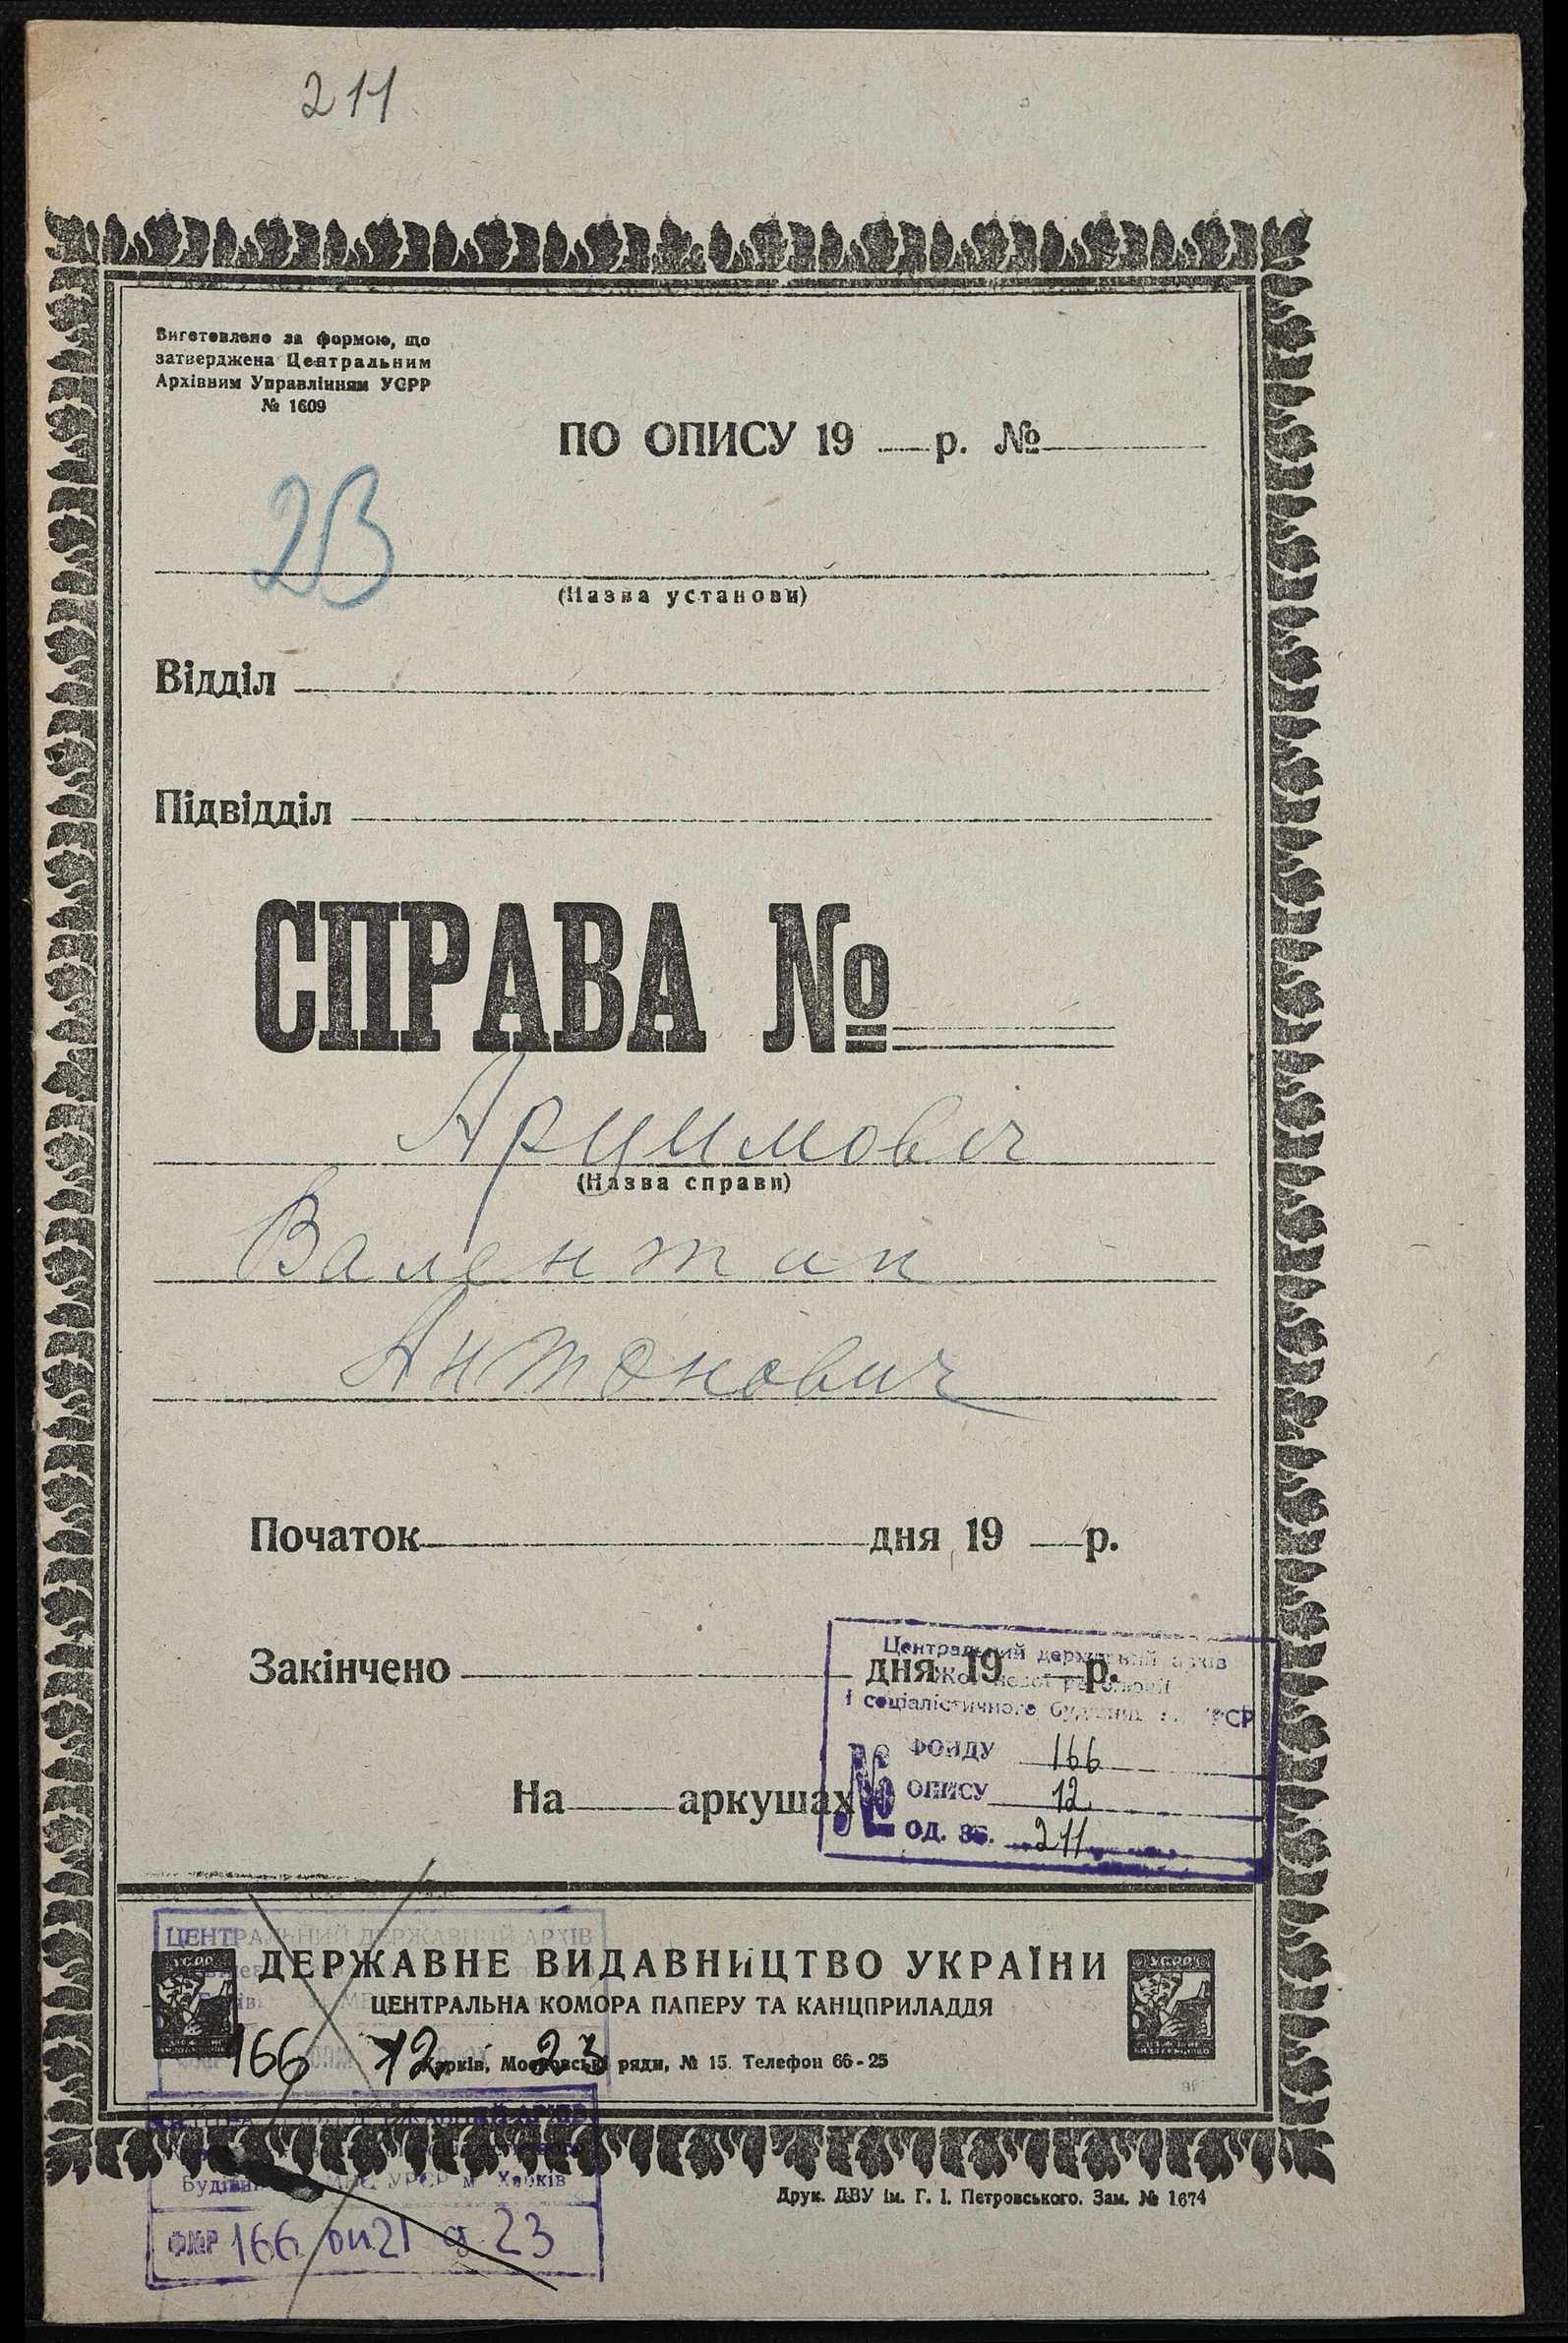 211
Виготовлено за формою, що
затверджена Центральним
Архівним Управлінням УСРР
№ 1609
ПО ОПИСУ 19 р. №
23
(Назва установи)
Відділ
Підвідділ
СПРАВА №
Арцимовіч
(Назва справи)
Валентин
Антонович
Початок дня 19 р.
Закінчено дня 19 р.
Центральний державний архів
Жовтневої революції
і соціалістичного УРСР
На аркушах
№ ФОНДУ 166
ОПИСУ 12
ОД. ЗБ. 211
ЦЕНТРАЛЬНИЙ ДЕРЖАВНИЙ АРХІВ
ДЕРЖАВНЕ ВИДАВНИЦТВО УКРАЇНИ
ЦЕНТРАЛЬНА КОМОРА ПАПЕРУ ТА КАНЦПРИЛАДДЯ
Харків, Московські ряди, № 15. Телефон 66-25
166 12 23
ДЕРЖАВНИЙ АРХІВ
УРСР м. Харків
Друк. ДВУ ім. Г. І. Петровського. Зам. № 1674
166 оп 21 д 23